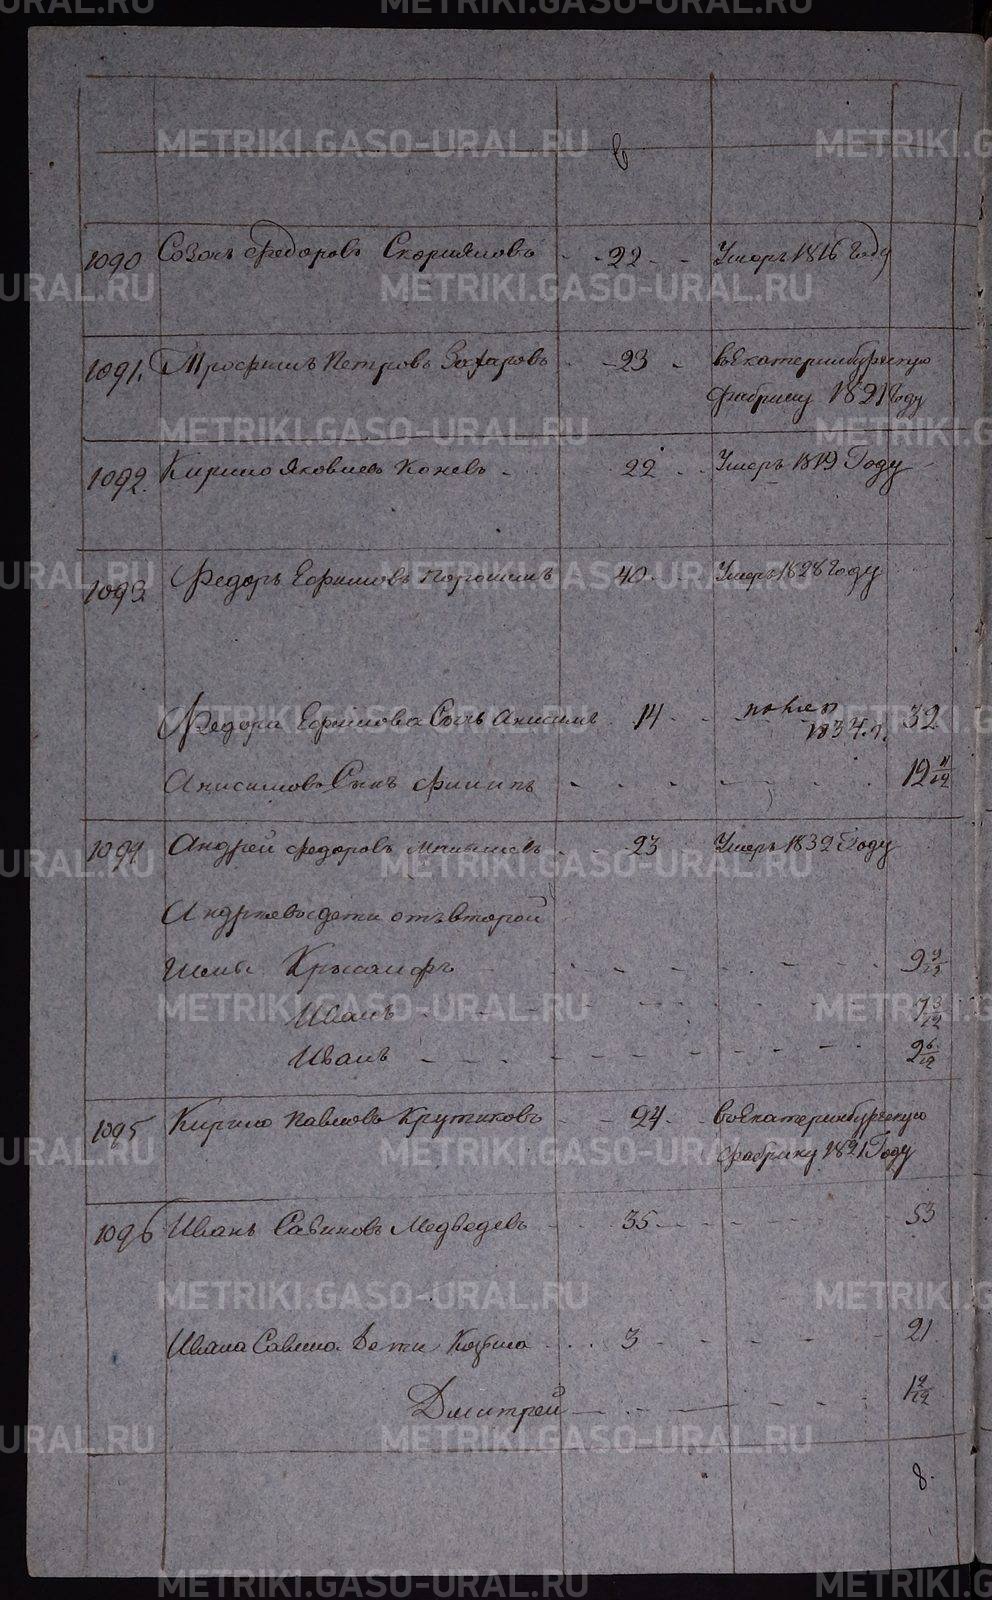 1090 Созонъ Федоровъ 22 Умеръ 1816 Году
1091. Трофимъ Петровъ Захаровъ 23 въ Екатеринбургскую
фабрику 1821 Году
1092. Кирило Яковлевъ Коневъ 22 Умеръ 1819 Году
1093. Федоръ Ефимовъ Порошинъ 40 Умеръ 1828 Году
Федора Ефимова Сынъ Анисимъ 14 1834. г. 32
Анисимовъ Сынъ Филипъ 12 11/12
1094. Андрей Федоровъ 23 Умеръ 1832 Году
Андреевы дети отъ второй
жены Крысанфъ 9 9/12
Иванъ 7 3/12
Иванъ 2 6/12
1095 Кирило Павловъ Крутиковъ 24 въ Екатеринбургскую
фабрику 1821 Году
1096 Иванъ Савиновъ Медведевъ 35 53
Ивана Савина Дети Козма 3 21
Дмитрей 1 2/12
8.
METRIKI.GASO-URAL.RU